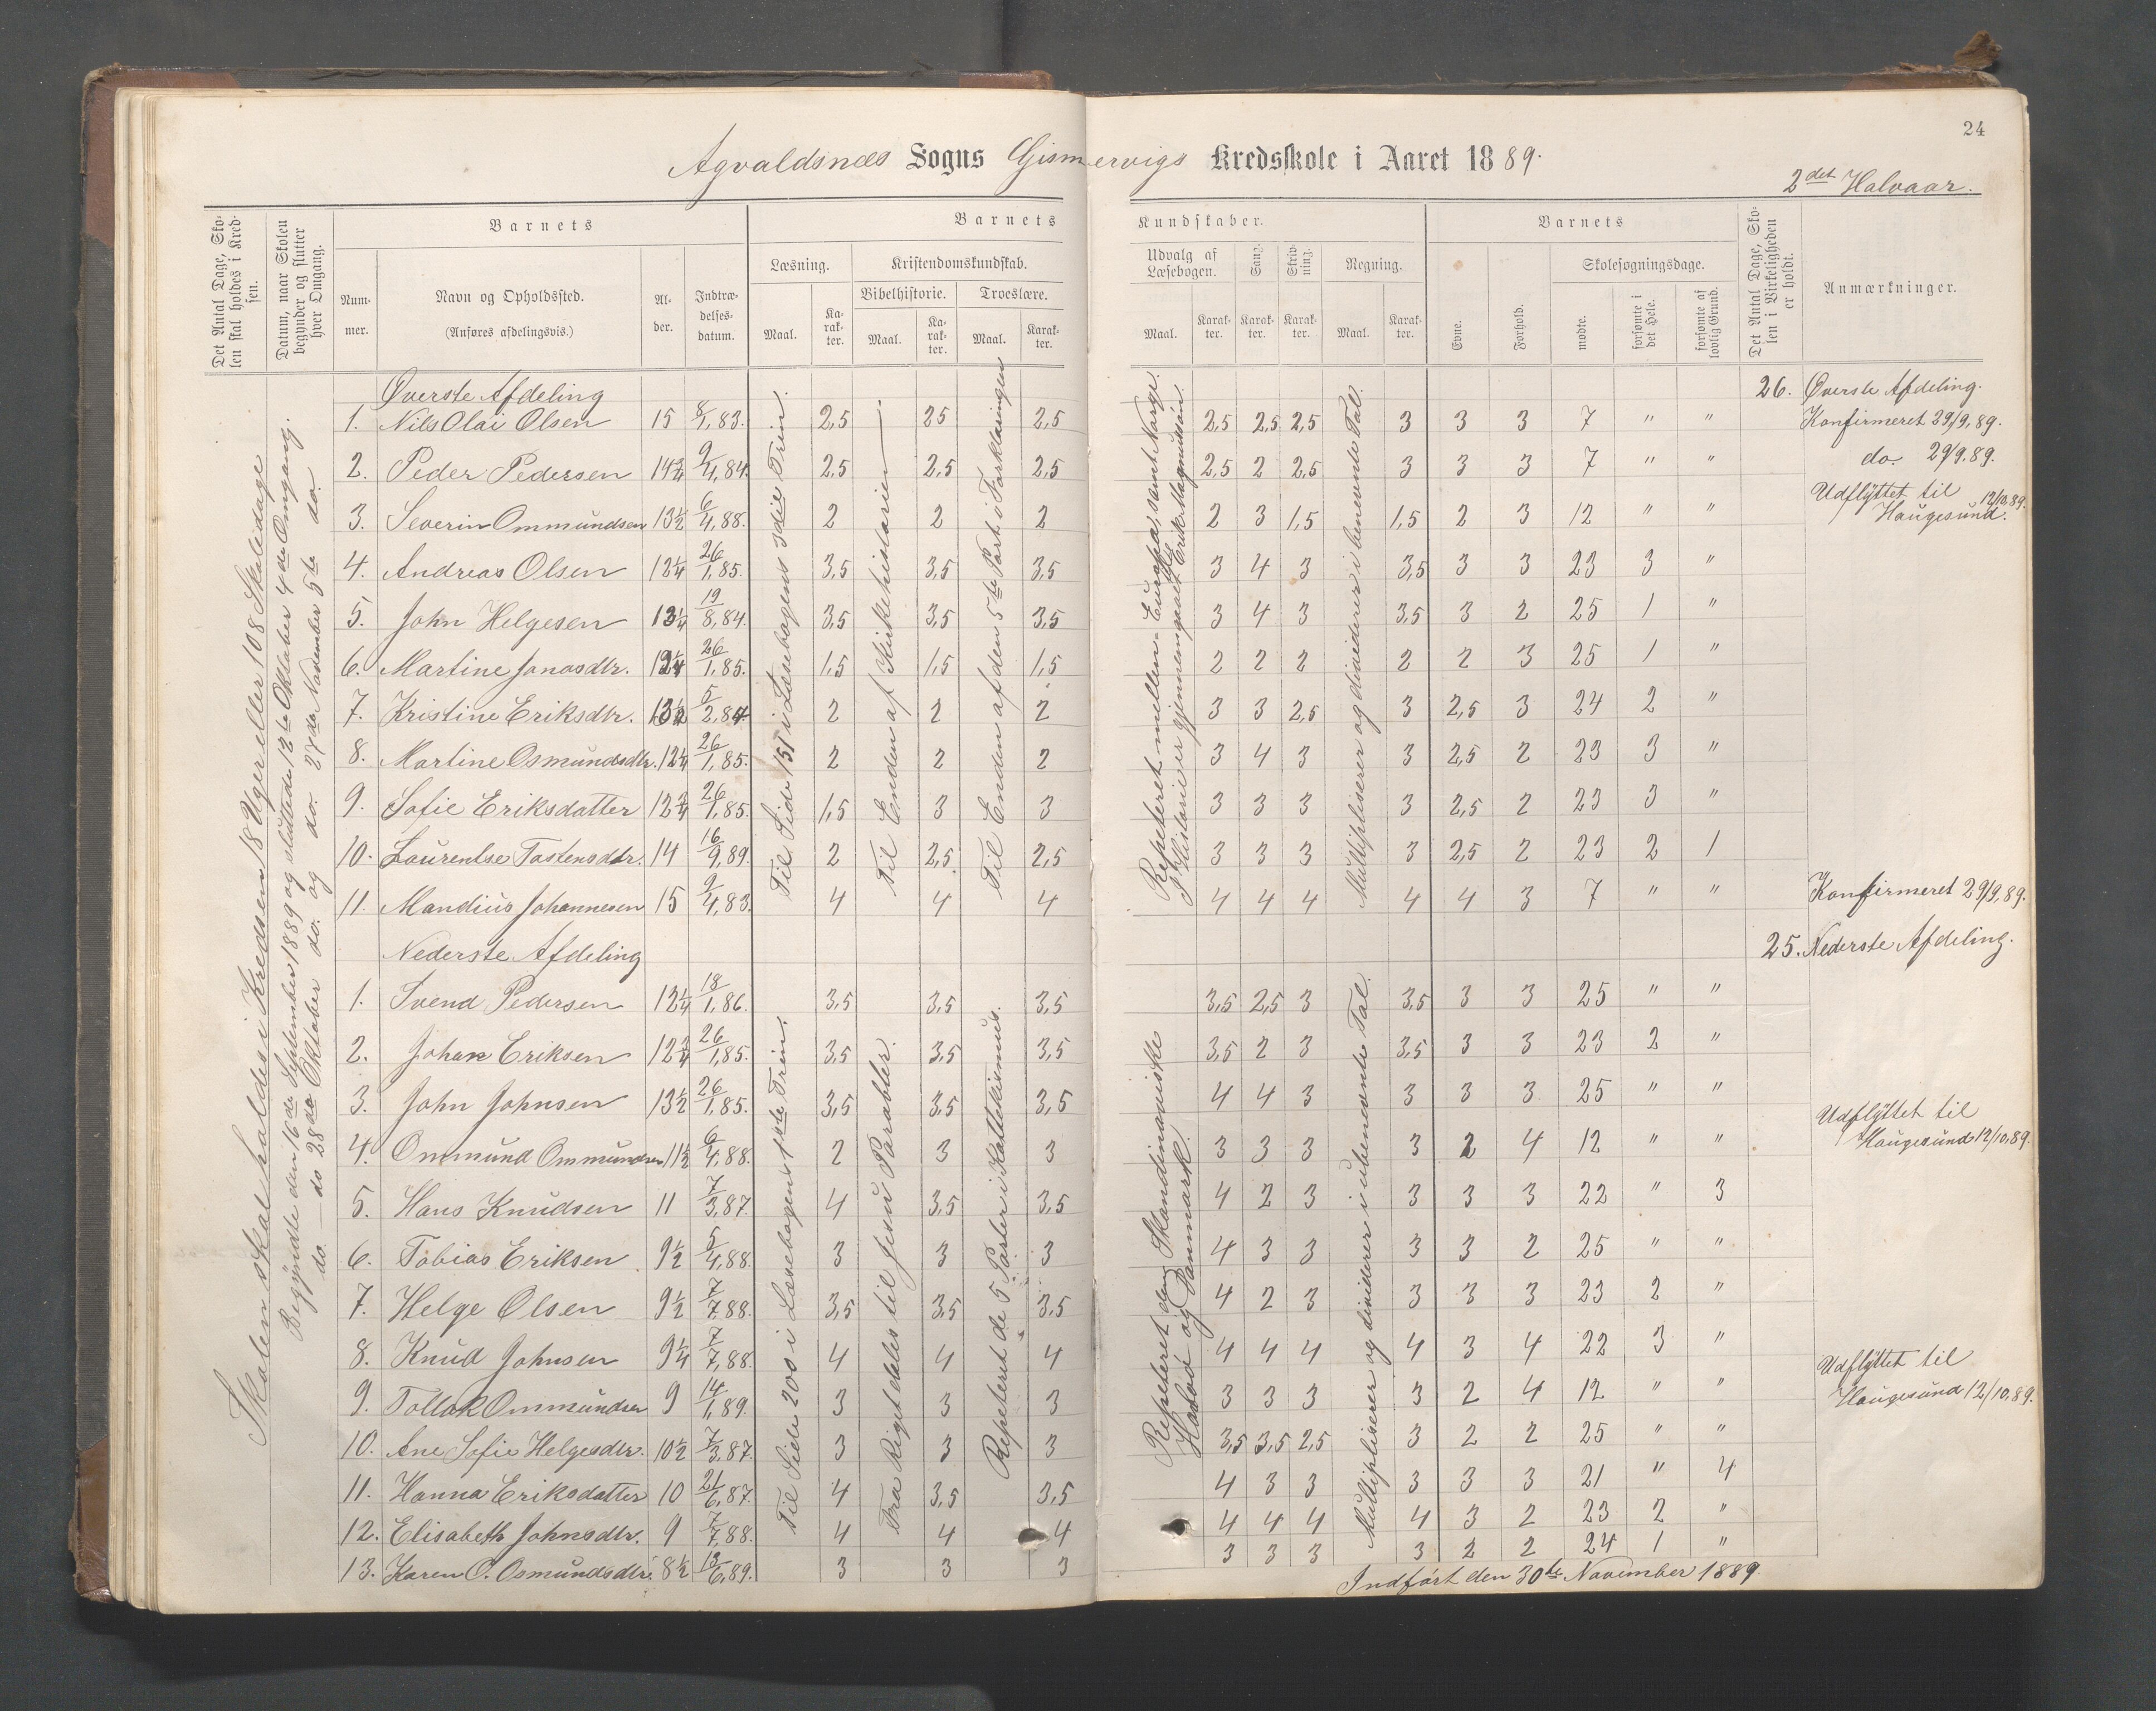 24
Agvaldsnæs Sogns Gismervigs Kredsskole i Aaret 1889.
2det Halvaar.
Det Antal Dage, Skolen skal holdes i Kredsen.
Datum, naar Skolen begynder og slutter hver Omgang.
Barnets
Barnets
Kundskaber.
Barnets
Det Antal Dage, Skolen i Virkeligheden er holdt.
Anmærkninger.
Nummer.
Navn og Opholdssted.
(Anføres afdelingsvis.)
Alder.
Indtrædelsesdatum.
Læsning.
Kristendomskundskab.
Bibelhistorie.
Troeslære.
Udvalg af Læsebogen.
Sang.
Skrivning.
Regning.
Evne.
Forhold.
Skolesøgningsdage.
mødte.
forsømte i det Hele.
forsømte af lovlig Grund.
Maal. Karakter. Maal. Karakter. Maal. Karakter.
Maal. Karakter. Karakter. Karakter. Maal. Karakter.
Skolen skal holdes i Kredsen 18 Uger eller 108 Skoledage
Begyndte den 16de September 1889 og sluttede 12te Oktober 4de Omgang.
do. do 28de Oktober do. og do. 27de November 5te do.
Til Side 151 i Læsebogens 3die Trin.
Til Enden af Kirkehistorien
Til Enden af den 5te Part i Forklaringen
Repeteret mellem Europa, samt Norge.
I Historie er gjennemgaaet Erik Magnussøn.
Multipliserer og dividerer i benevnte Tal.
Øverste Afdeling 26. Øverste Afdeling.
1. Nils Olai Olsen 15 8/1,83. 2,5 25 2,5 2,5 2,5 2,5 3 3 3 7 " " Konfirmeret 29/9,89.
2. Peder Pedersen 14 3/4 9/4,84. 2,5 2,5 2,5 2,5 2 2,5 3 3 3 7 " " do. 29/9.89.
3. Severin Ommundsen 13 1/2 6/4,88. 2 2 2 2 3 1,5 1,5 2 3 12 " " Udflyttet til Haugesund. 12/10,89.
4. Andreas Olsen 12 1/4 26/1,85. 3,5 3,5 3,5 3 4 3 3,5 3 3 23 3 "
5. John Helgesen 13 1/4 19/8,84. 3,5 3,5 3,5 3 4 3 3,5 3 2 25 1 "
6. Martine Jonasdtr. 12 1/4 26/1,85. 1,5 1,5 1,5 2 2 2 2 2 3 25 1 "
7. Kristine Eriksdtr. 13 1/2 5/2,84. 2 2 2 3 3 2,5 3 2,5 3 24 2 "
8. Martine Osmundsdtr. 12 1/4 26/1,85. 2 2 2 3 4 3 3 2,5 2 23 3 "
9. Sofie Eriksdatter 12 3/4 26/1,85. 1,5 3 3 3 3 3 3 2,5 2 23 3 "
10. Laurentse Tastensdtr. 14 16/9,89. 2 2,5 2,5 3 3 3 3 2,5 2 23 2 1
11. Mandius Johannesen 15 9/4,83. 4 4 4 4 4 4 4 4 3 7 " " Konfirmeret 29/9,89.
Nederste Afdeling 25. Nederste Afdeling.
Til Side 200 i Læsebogens 1ste Trin.
Fra Riget deles til Jesu Parabler.
Repeteret de 5 Parter i Kattekismus.
Repeteret den Skandinaviske
Halvø og Danmark.
Multipliserer og dividerer i ubenevnte Tal.
1. Svend Pedersen 12 1/4 18/1,86. 3,5 3,5 3,5 3,5 2,5 3 3,5 3 3 25 " "
2. Johan Eriksen 12 3/4 26/1,85. 3,5 3,5 3,5 3,5 2 3 3,5 3 3 23 2 "
3. John Johnsen 13 1/2 26/1,85. 3,5 3,5 3,5 4 4 3 3 3 3 25 " "
4. Ommund Ommundsen 11 1/2 6/4,88. 2 3 3 3 3 3 3 2 4 12 " " Udflyttet til Haugesund 12/10,89.
5. Hans Knudsen 11 7/3,87. 4 3,5 3,5 4 2 3 3 3 3 22 " 3
6. Tobias Eriksen 9 1/2 5/4,88. 3 3 3 4 3 3 3 3 2 25 " "
7. Helge Olsen 9 1/2 7/7,88. 3,5 3,5 3,5 4 2 3 3 3 3 23 2 "
8. Knud Johnsen 9 1/4 7/7,88. 4 4 4 4 4 4 4 3 4 22 3 "
9. Tollak Ommundsen 9 14/1,89. 3 3 3 3 3 3 3 2 4 12 " " Udflyttet til Haugesund 12/10,89.
10. Ane Sofie Helgesdtr. 10 1/2 7/3,87. 3 3 3 3,5 3,5 2,5 3 2 2 25 " "
11. Hanna Eriksdatter 10 21/6,87. 4 3,5 3,5 4 3 3 3 3 3 21 " 4
12. Elisabeth Johnsdtr. 9 7/7,88. 4 4 4 4 4 4 4 3 2 23 2 "
13. Karen O. Osmundsdtr. 8 1/2 13/6,89. 3 3 3 3 3 3 3 2 2 24 1 "
Indført den 30te November 1889.